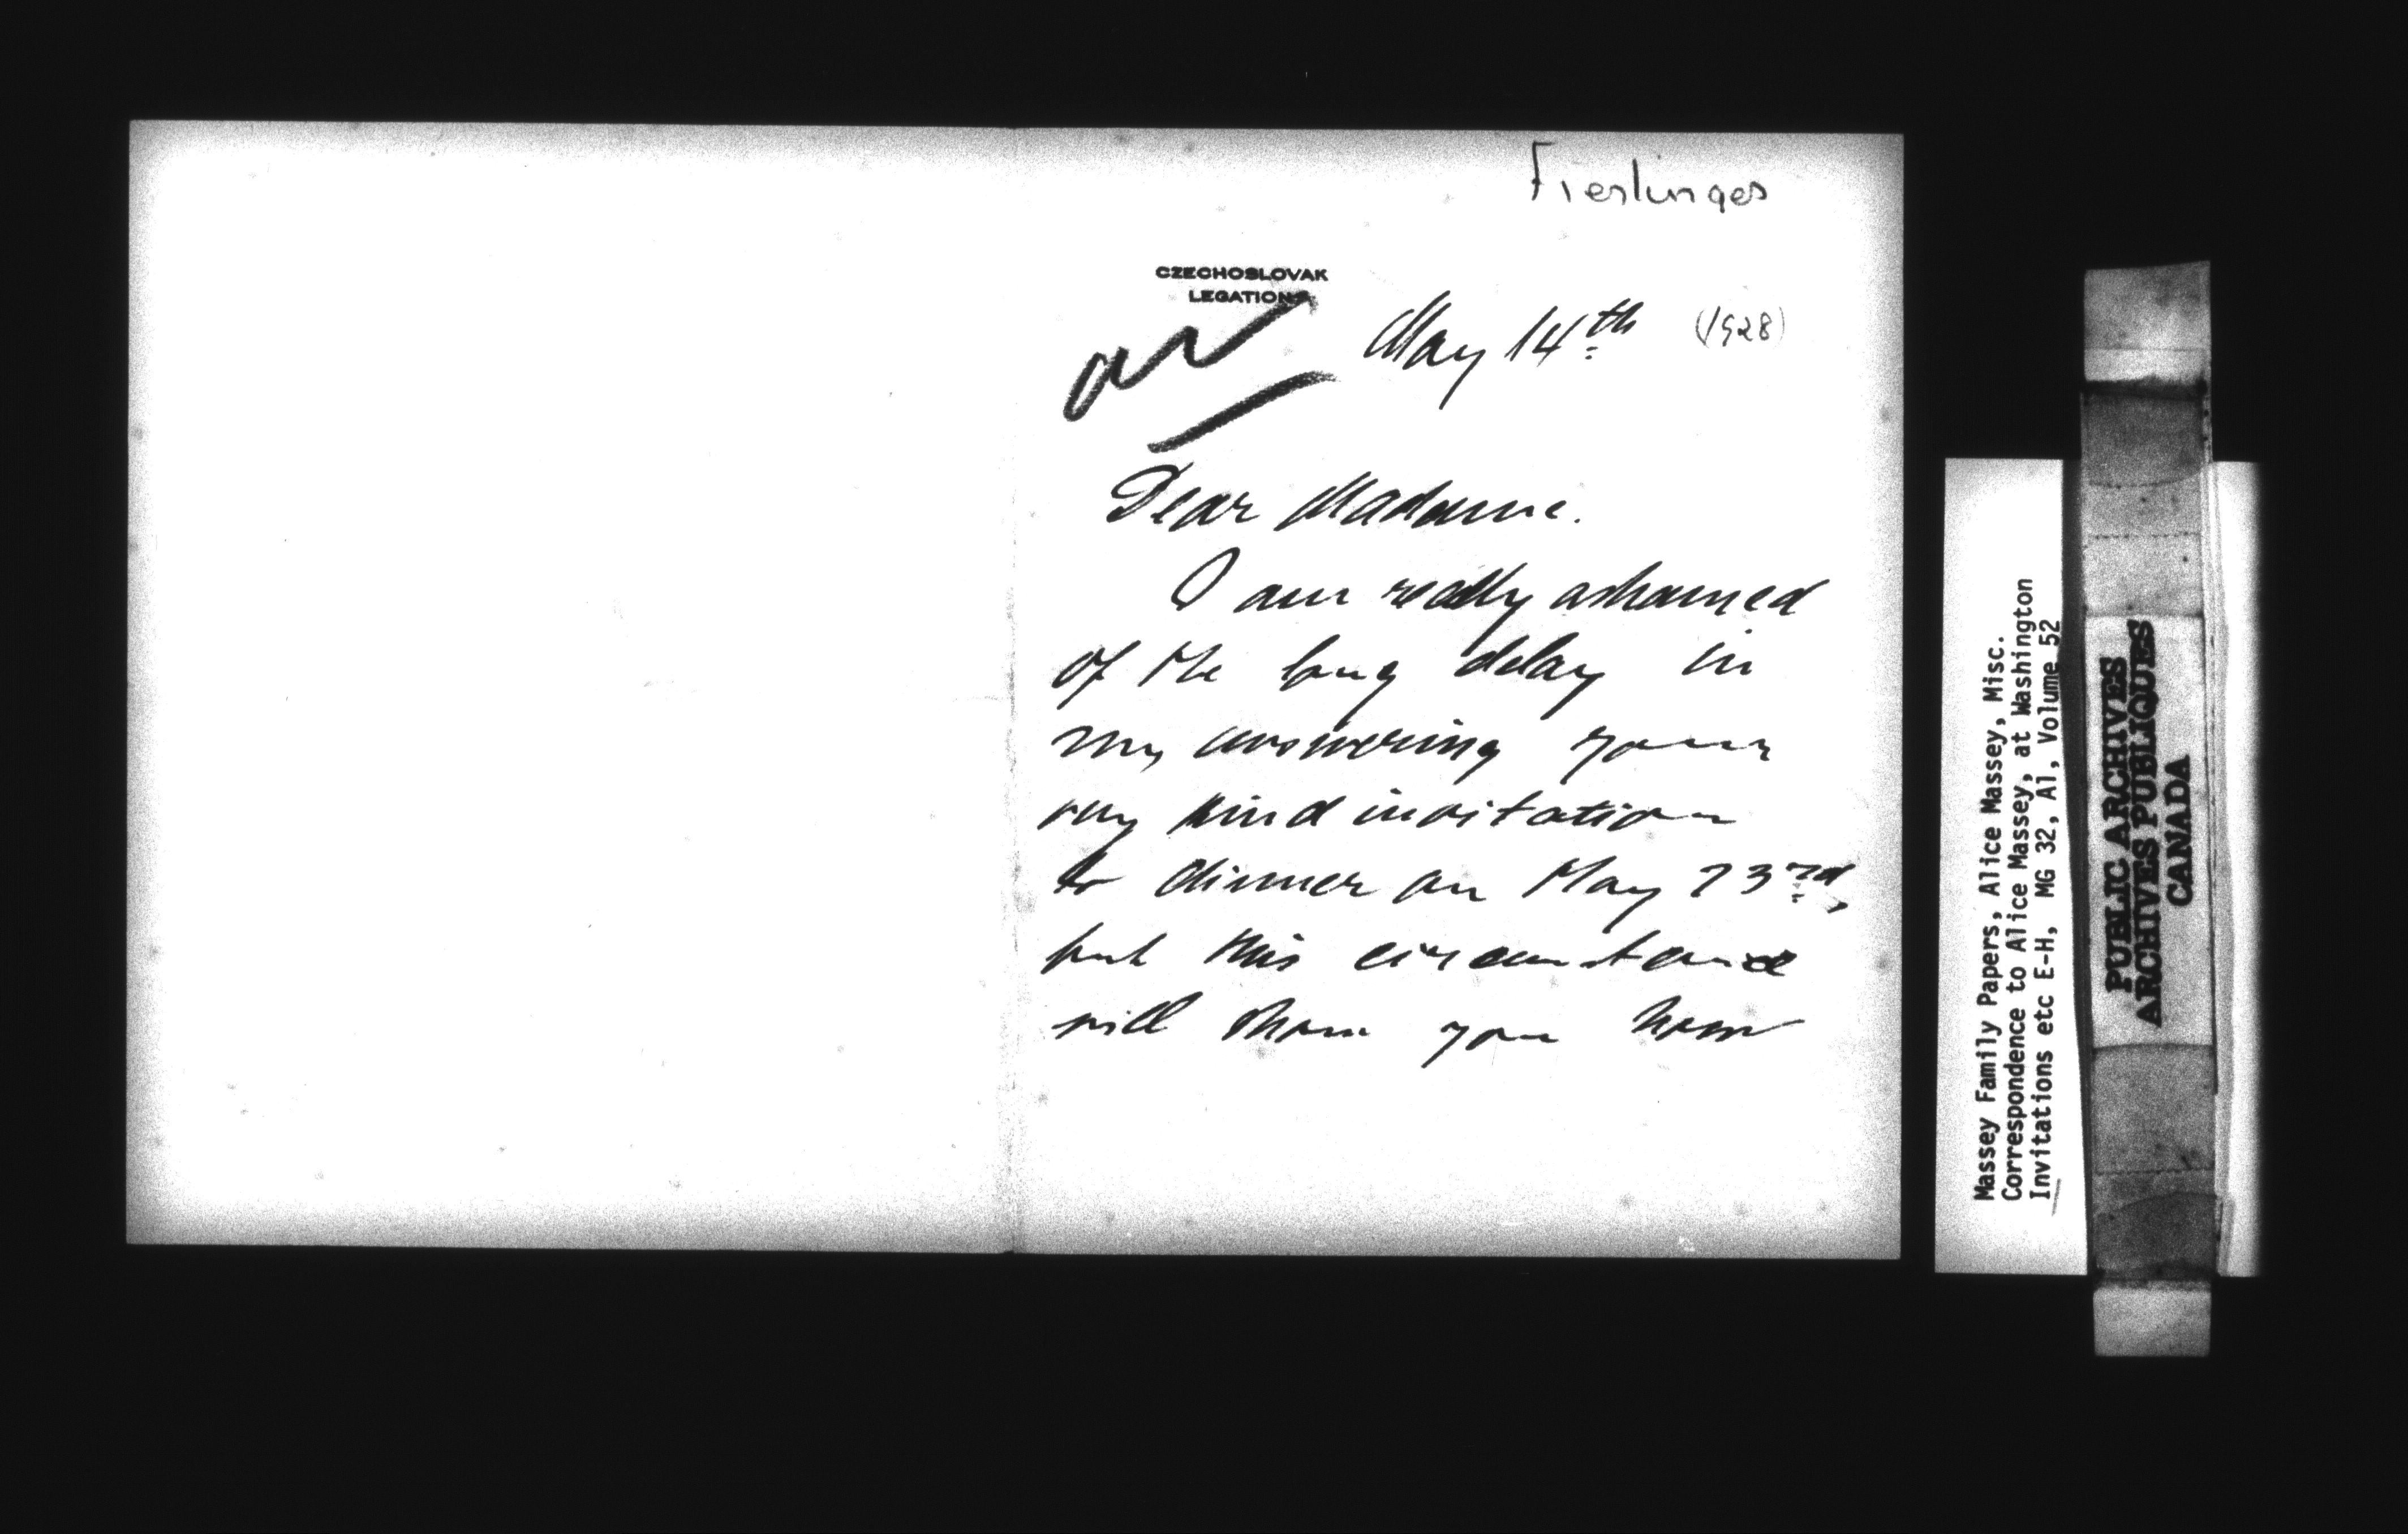 Fierlinger
CZECHOSLOVAK
LEGATION
May 14th (1928)
Dear Madame.
I am really ashamed
of the long delay in
my answering your
very kind invitation
to dinner on May 23rd,
but this circumstance
will show you how
Massey Family Papers, Alice Massey, Misc.
Correspondence to Alice Massey, at Washington
Invitations etc E-H, MG 32, A1, Volume 52
PUBLIC ARCHIVES
ARCHIVES PUBLIQUES
CANADA